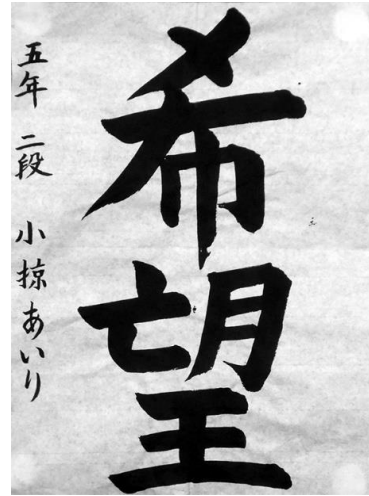 希望
五年 二段 小掠あいり